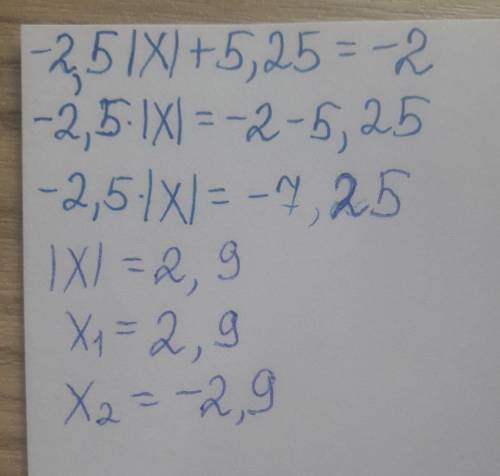 -2,5|X|+5,25=-2
-2,5·|X|=-2-5,25
-2,5·|X|=-7,25
|X|=2,9
X₁=2,9
X₂=-2,9